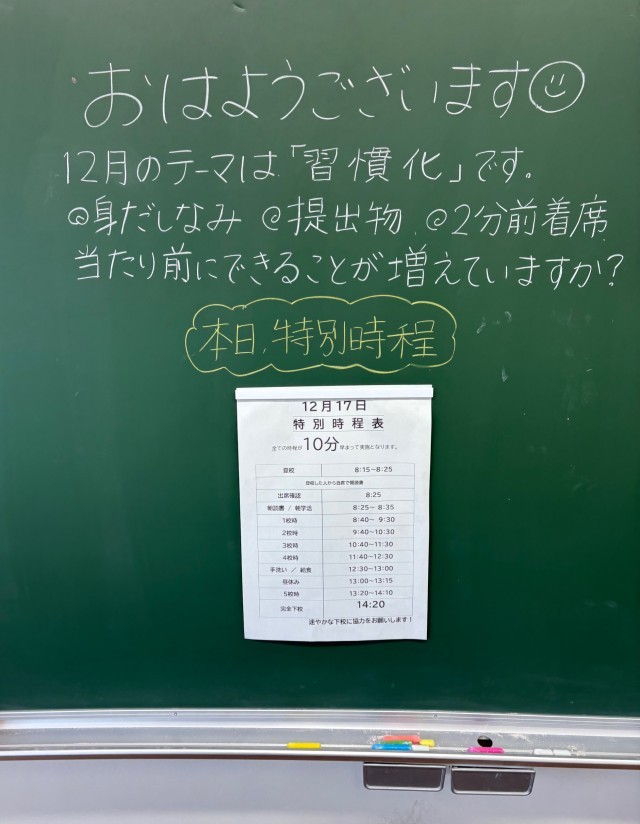 おはようございます☺
12月のテーマは「習慣化」です。
◎身だしなみ ◎提出物 ◎2分前着席
当たり前にできることが増えていますか?
本日、特別時程
12月17日
特別時程表
全ての時程が 10分 早まって実施となります。
登校 8:15～8:25
登校した人から自席で朝読書
出席確認 8:25
朝読書 / 朝学活 8:25～ 8:35
1校時 8:40～ 9:30
2校時 9:40～10:30
3校時 10:40～11:30
4校時 11:40～12:30
手洗い / 給食 12:30～13:00
昼休み 13:00～13:15
5校時 13:20～14:10
完全下校 14:20
速やかな下校に協力をお願いします!